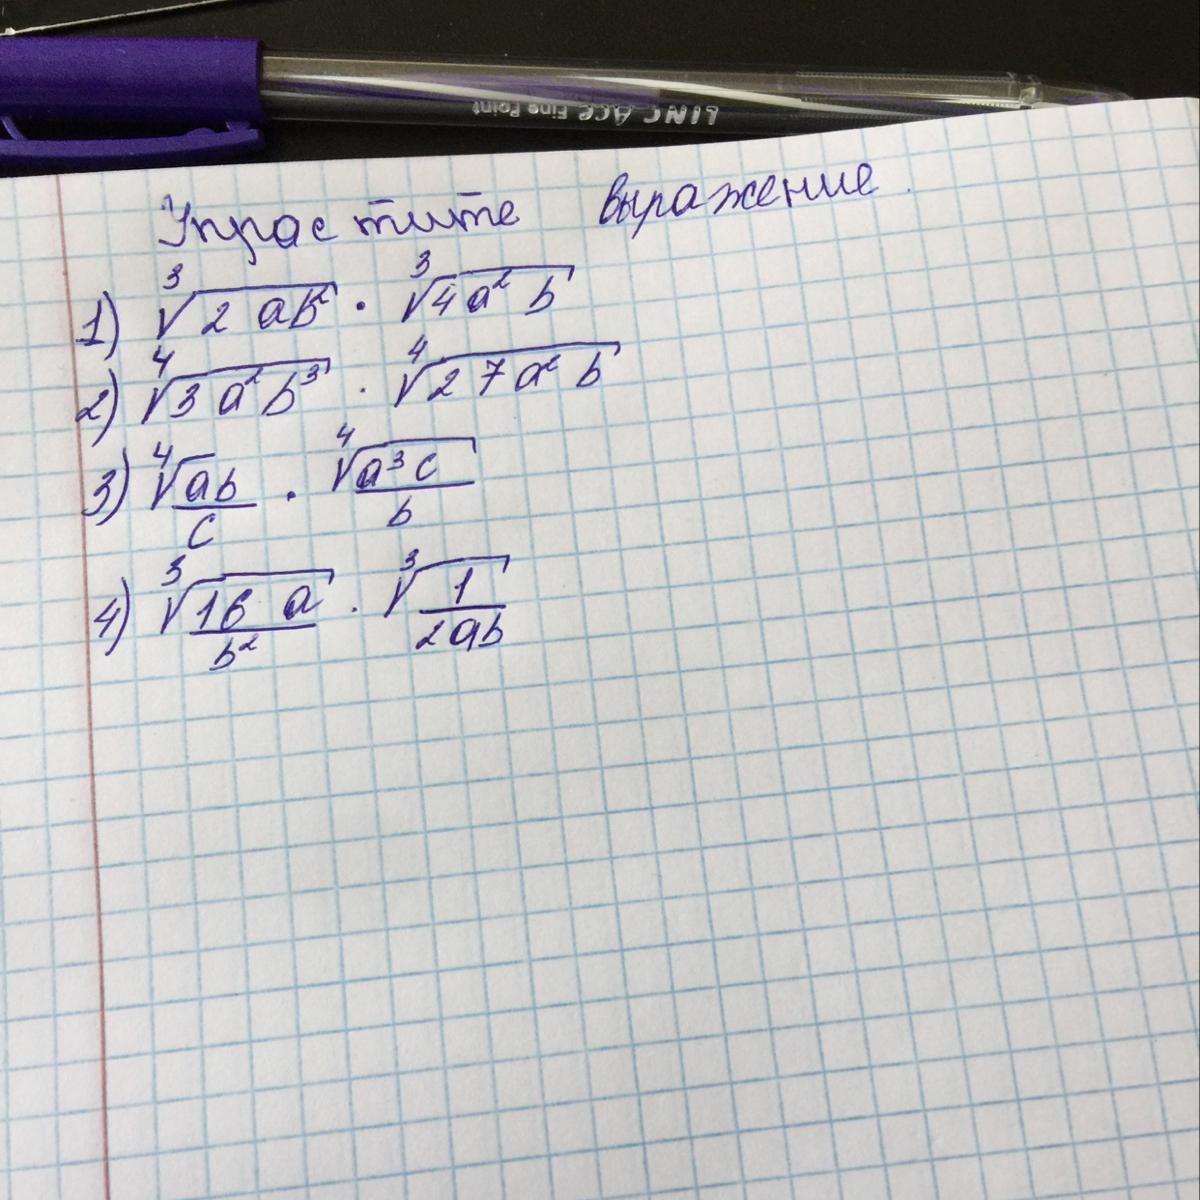 LINC Ace Fine Point
Упростите выражение.
1) ∛(2ab²) · ∛(4a²b)
2) ∜(3a²b³) · ∜(27a²b)
3) ∜(ab/c) · ∜(a³c/b)
4) ∛(16a/b²) · ∛(1/2ab)